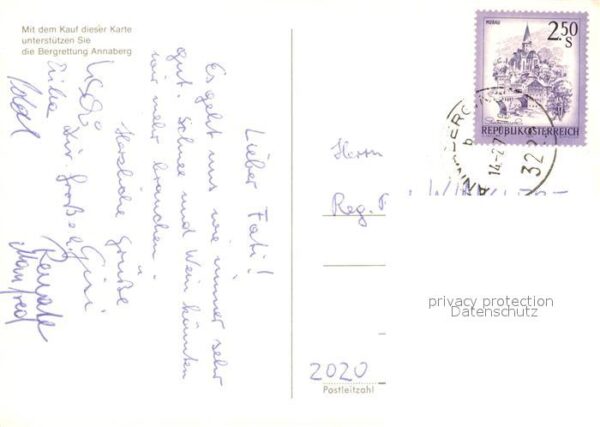 Mit dem Kauf dieser Karte
unterstützen Sie
die Bergrettung Annaberg
Lieber Fati!
Es geht uns wie immer sehr
gut. Schnee und Wein könnten
wir mehr brauchen.
Herzliche Grüße
Gini
Renate
Manfred
MURAU
2.50
S
REPUBLIK ÖSTERREICH
ANNABERG
b
322
Herrn
Reg.
2020
Postleitzahl
privacy protection
Datenschutz